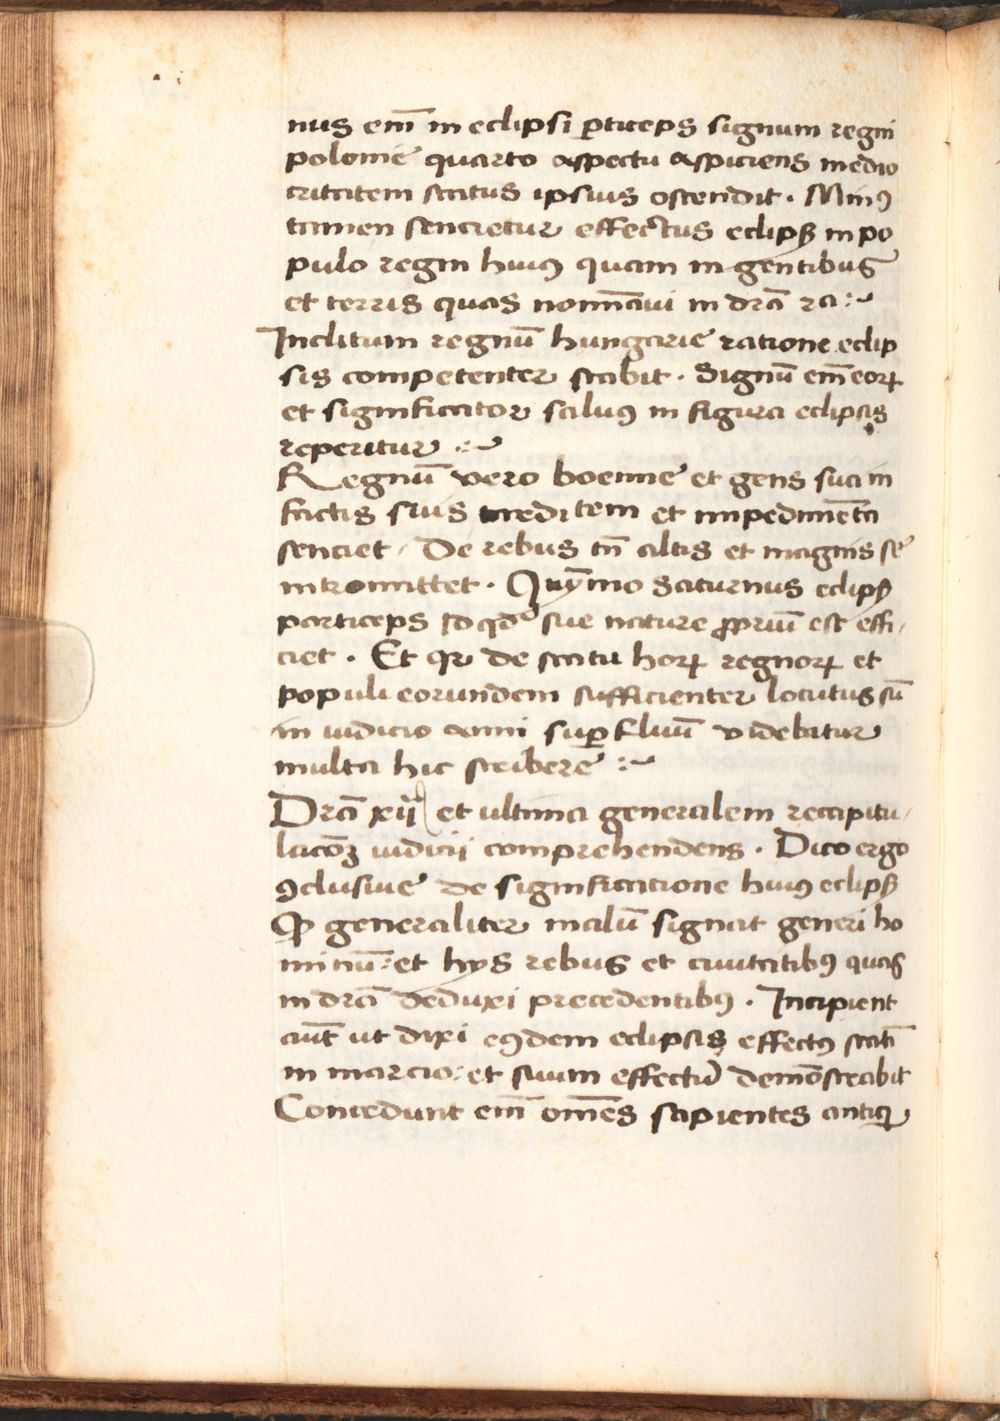 nus em̄ in eclipsi ꝑticeps signum regni
polonie quarto aspectu aspiciens medio
critatem status ipsius ostendit . Minꝰ
tamen sencietur effectus eclipß in po
pulo regni huiꝰ quam in gentibus
et terris quas nomīavi in dr̄a ra :~
Inclitum regnū hungarie ratione eclip
sis competenter stabit . Signū em̄ eoꝝ
et significator saluꝰ in figura eclipsis
reperitur :~
Regnū vero boemie et gens sua in
factis suis tarditatem et impedimēta
senciet . De rebus tn̄ altis et magnis se
intromittet . Saturnus eclipß
particeps id qd sue nature ꝓpriū est effi
ciet . Et qꝛ de statu hoꝝ regnoꝝ et
populi eorundem sufficienter locutus sū
in iudicio anni suꝑfluū videbatur
multa hic scribere :~
Dr̄a xij et ultima generalem recapitu
lacōꝫ iudicij comprehendens . Dico ergo
ꝯclusiue de significatione huiꝰ eclipß
ꝙ generaliter malū signat generi ho
minū : et hys rebus et ciuitatibꝰ quas
in dr̄a deduxi precedentibꝰ . Incipient
aūt ut dixi eꝰdem eclipsis effectꝰ stati
in marcio : et suum effectū demōstrabit
Concedunt em̄ om̄es sapientes antiqi